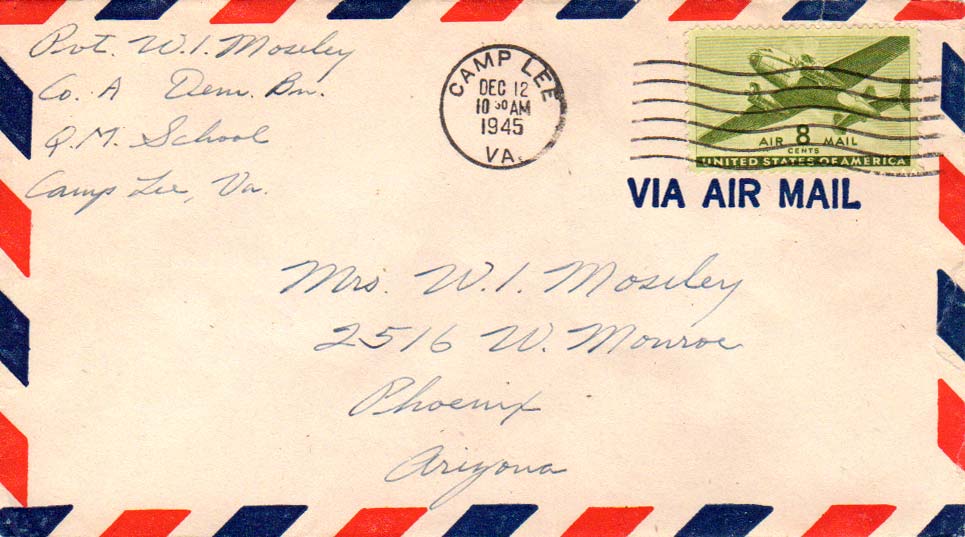 Pvt. W. I. Moseley
Co. A Dem. Bn.
Q.M. School
Camp Lee, Va.
CAMP LEE
DEC 12
10 30 AM
1945
VA.
AIR 8 MAIL
CENTS
UNITED STATES OF AMERICA
VIA AIR MAIL
Mrs. W. I. Moseley
2516 W. Monroe
Phoenix
Arizona